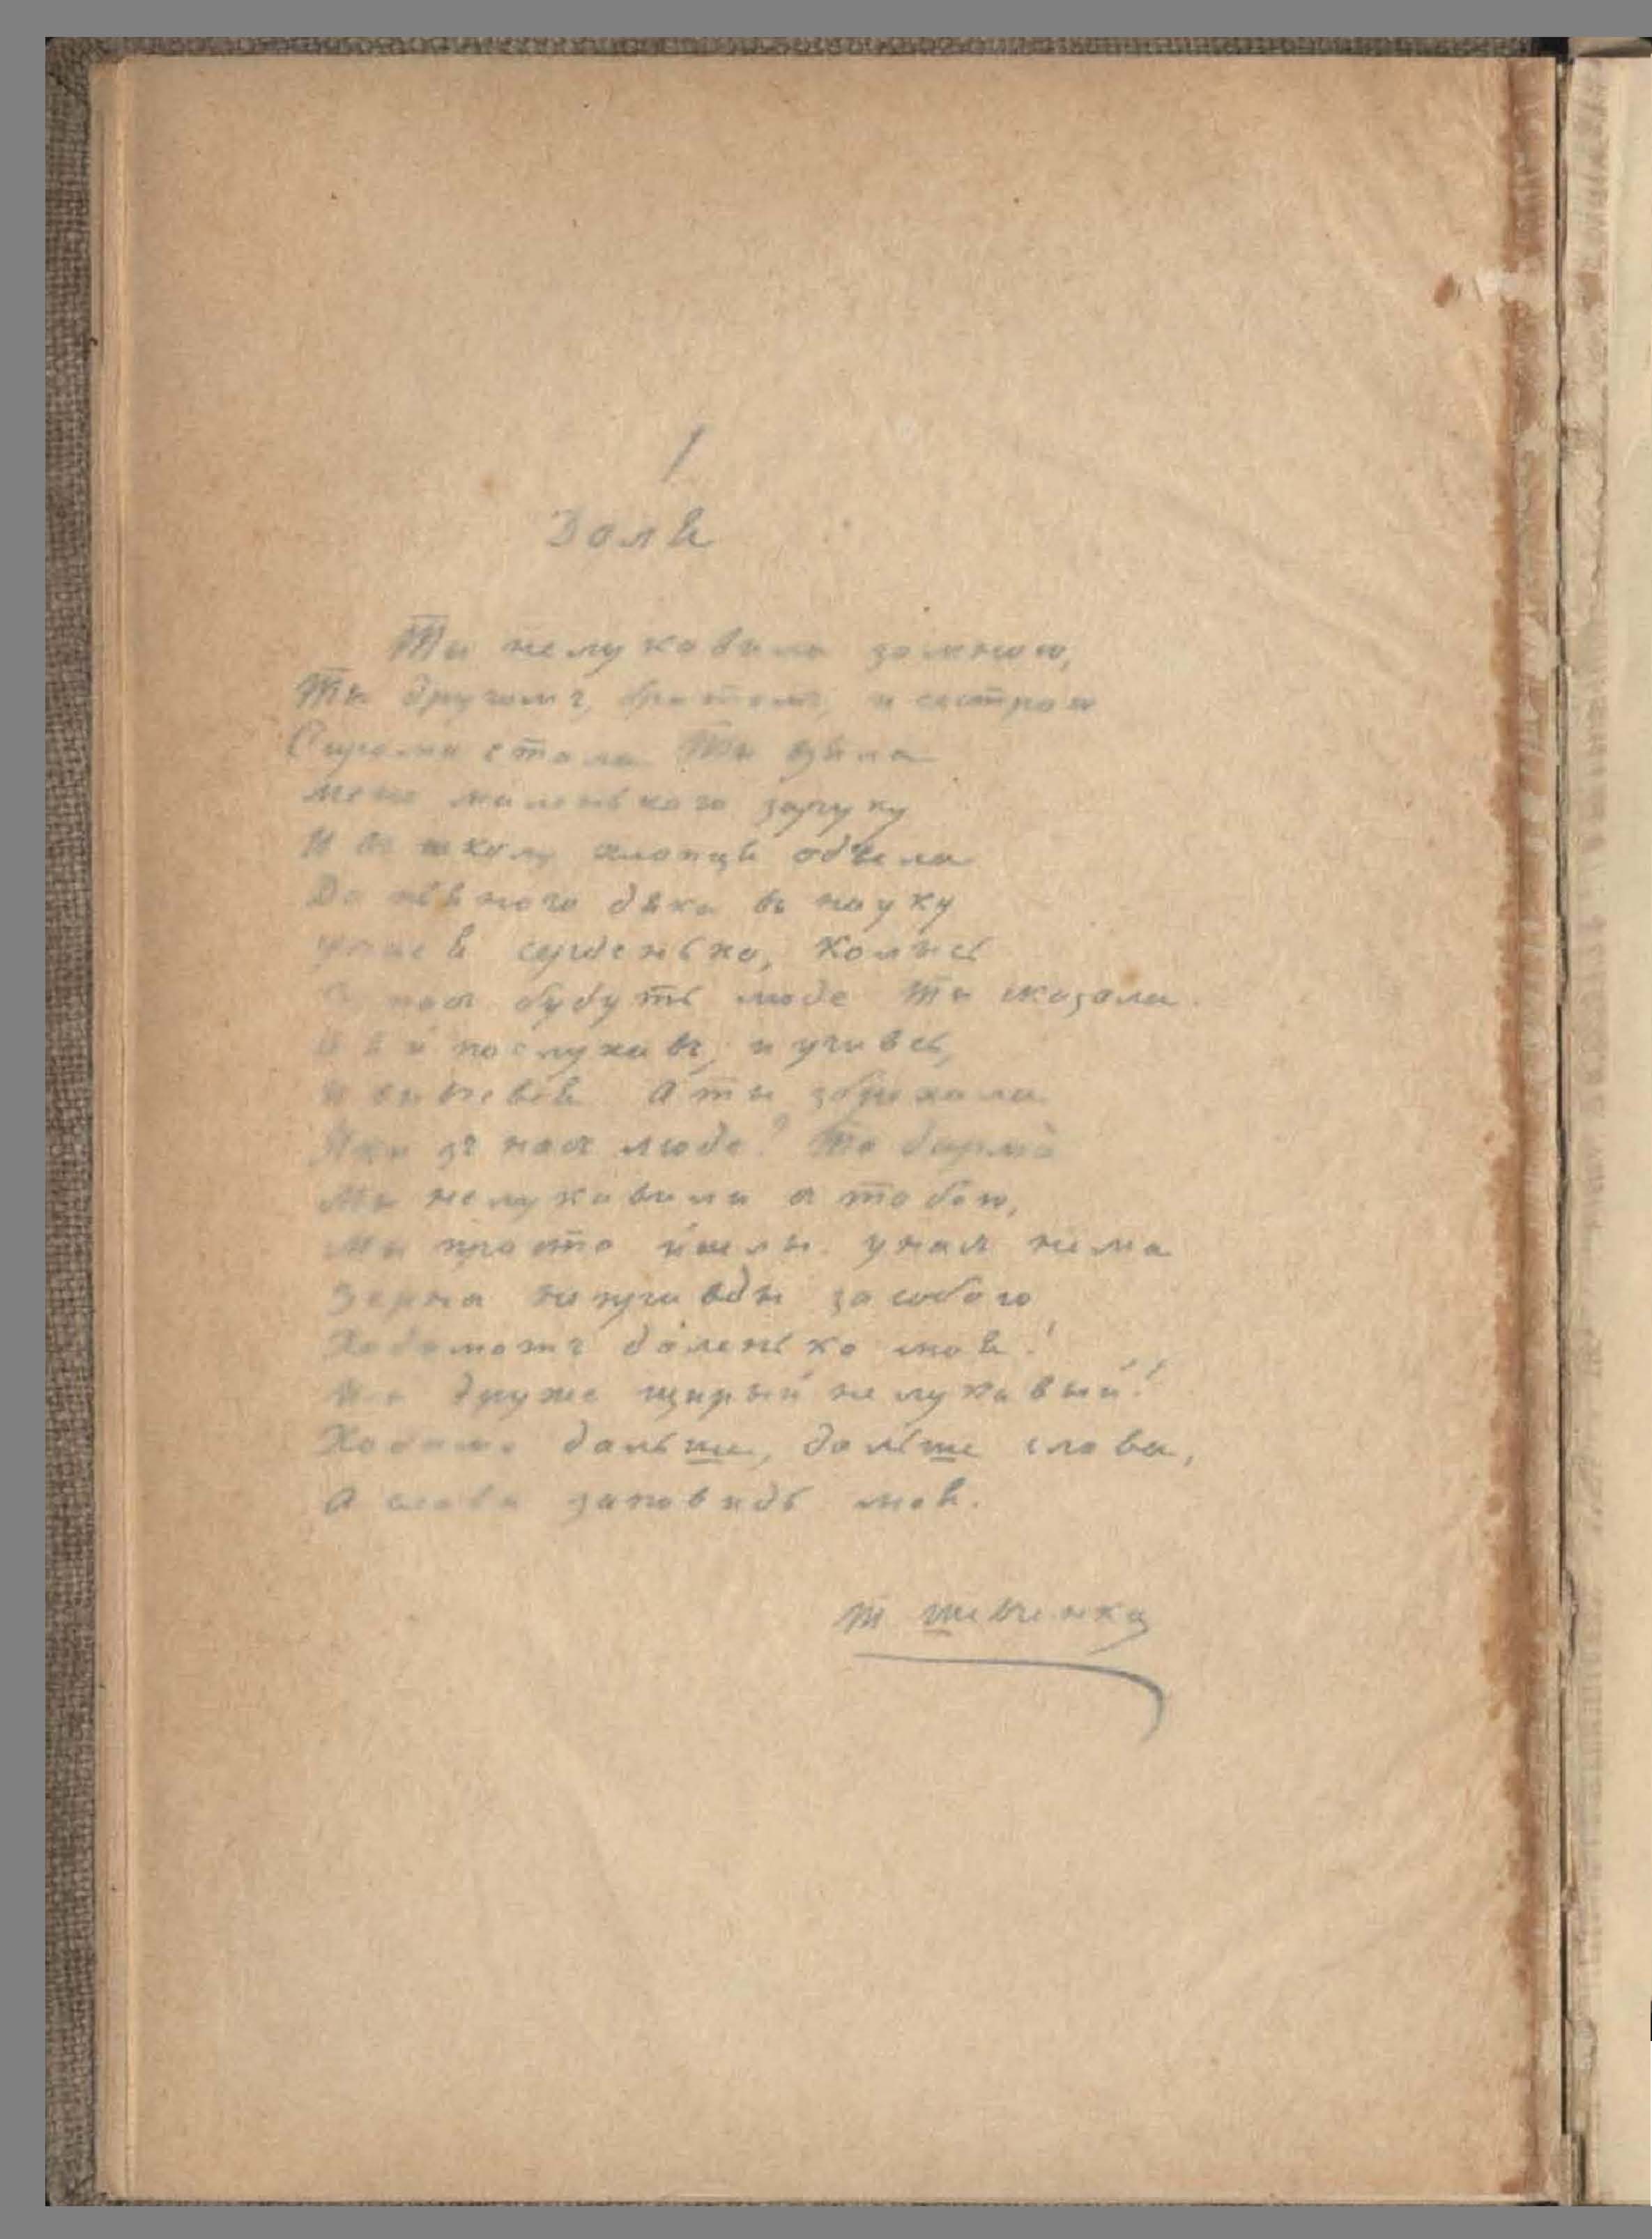 1
Долѣ
Ты нелукавила замною,
Ты другомъ, братомъ, и сестрою
Сиромѣ стала. Ты взяла
мене маленького заруку
И въ школу хлопця одвела
До пъяного дяка въ науку
серденько, колись
насъ будуть люде ты сказала.
послухавъ, и учивсь,
А ты збрехала
Яки зъ насъ люде? Та дарма
Мы нелукавили съ тобою,
Мы просто йшли. унасъ нема
Зерна неправды засобою
Ходимотъ доленько моя!
друже щирый нелукавый!
Ходимо дальше, дальше слава,
А слава заповидь моя.
Т Шевченка